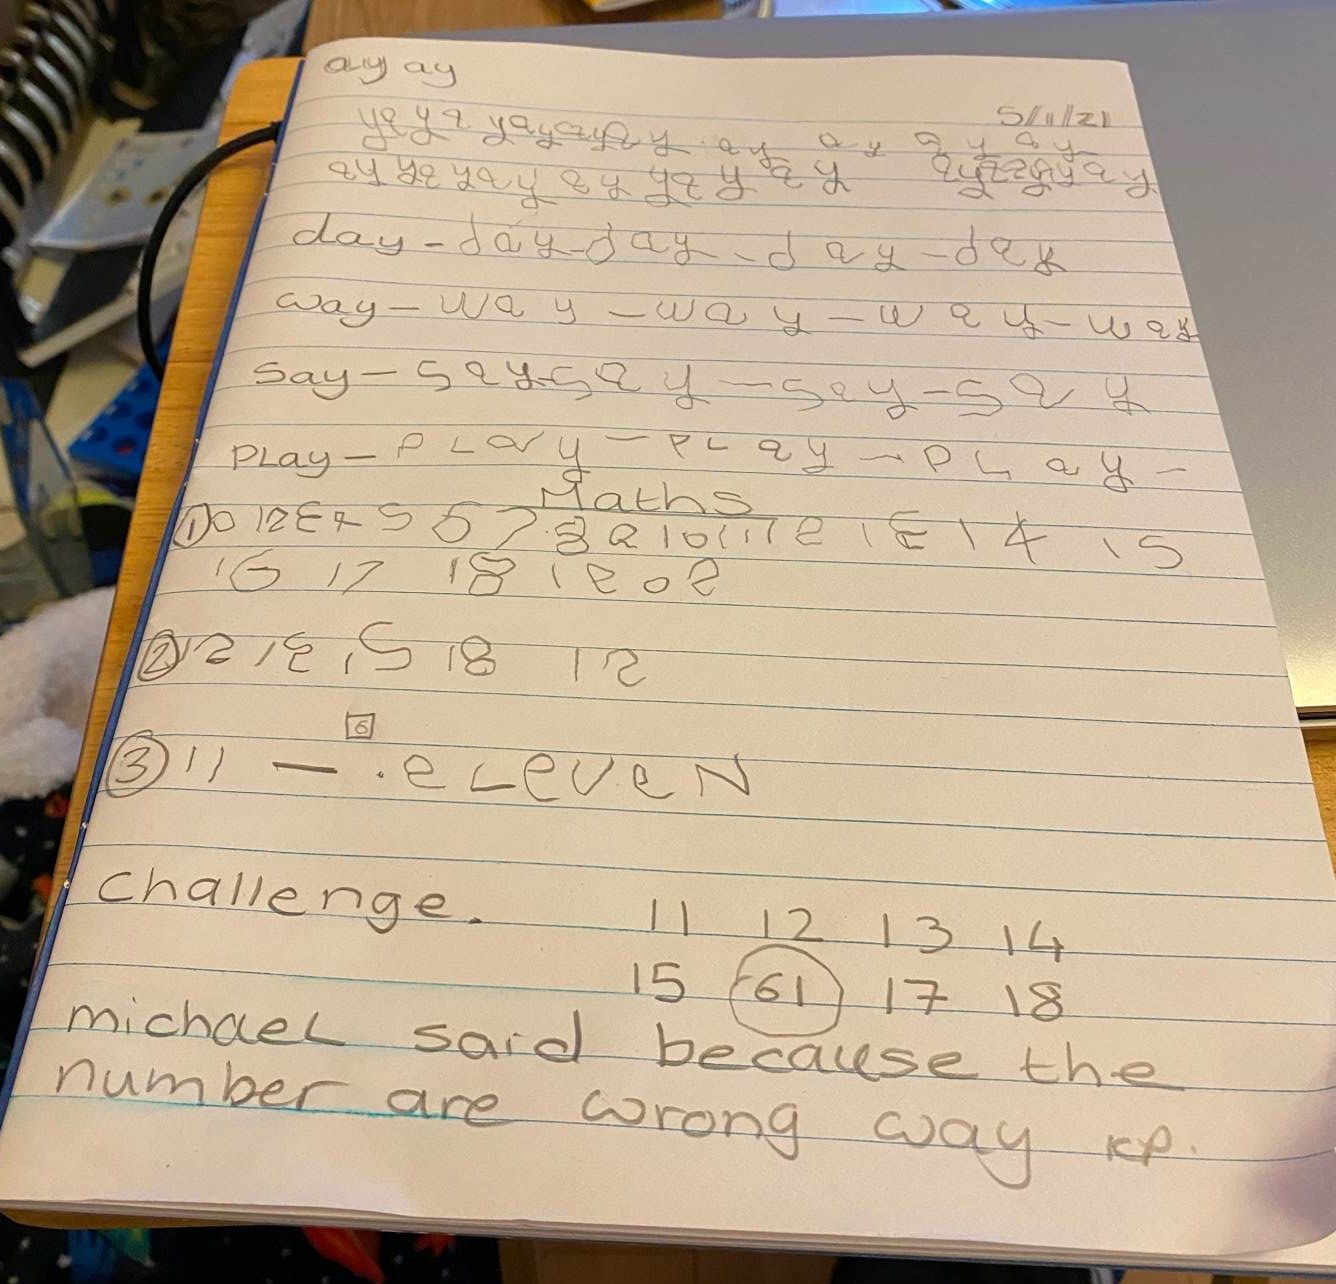 ay ay
5/11/21
yay ay ay ay ay
ay ay ay ay
day - day - day - day - day
way - way - way - way - way
say - say - say - say - say
PLay - PLay - PLay - PLay -
Maths
① 0 1 2 3 4 5 6 7 8 9 10 11 12 13 14 15
16 17 18 19 20
② 12 13 15 18 12
6
③ 11 - eLeveN
challenge. 11 12 13 14
15 61 17 18
michael said because the
number are wrong way